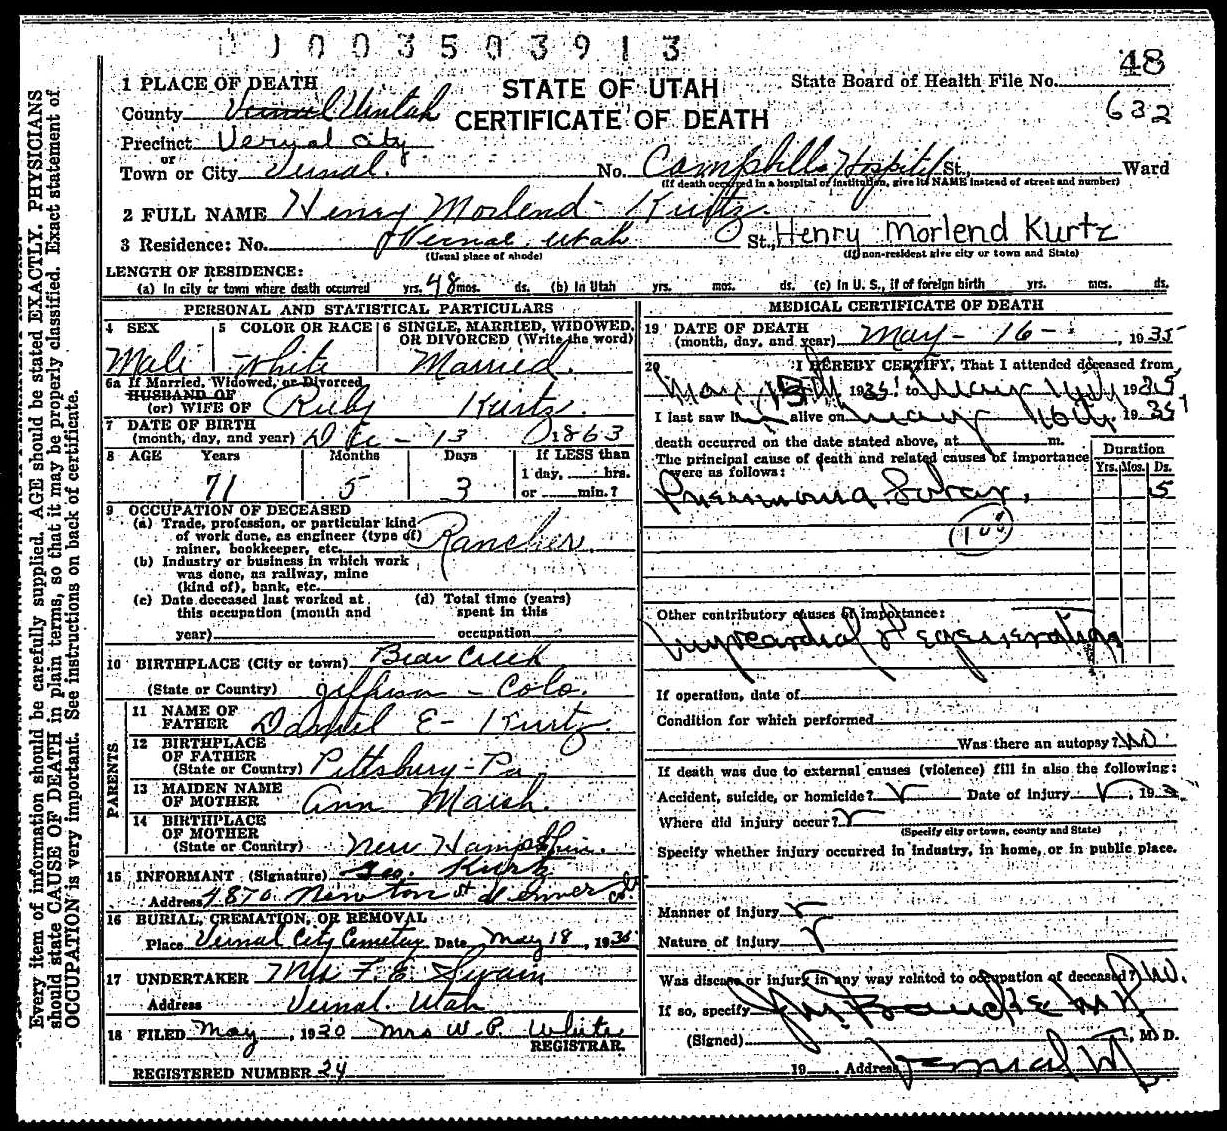 0 0 0 3 5 0 3 9 1 3
48
1 PLACE OF DEATH
STATE OF UTAH
State Board of Health File No.
County Vernal Uintah
CERTIFICATE OF DEATH
632
Precinct Vernal City
or
Town or City Vernal. No. Campbills Hospital St., Ward
(If death occurred in a hospital or institution, give its NAME instead of street and number)
2 FULL NAME Henry Morlend Kurtz.
3 Residence: No. Vernal Utah St., Henry Morlend Kurtz
(Usual place of abode) (If non-resident give city or town and State)
LENGTH OF RESIDENCE:
(a) In city or town where death occurred yrs. 48 mos. ds. (b) In Utah yrs. mos. ds. (c) In U. S., if of foreign birth yrs. mos. ds.
PERSONAL AND STATISTICAL PARTICULARS
4 SEX 5 COLOR OR RACE 6 SINGLE, MARRIED, WIDOWED, OR DIVORCED (Write the word)
Male White Married.
6a If Married, Widowed, or Divorced
HUSBAND OF
(or) WIFE OF Ruby Kurtz.
7 DATE OF BIRTH
(month, day, and year) Dec - 13 1863
8 AGE Years Months Days If LESS than
1 day, hrs.
71 5 3 or min.?
9 OCCUPATION OF DECEASED
(a) Trade, profession, or particular kind
of work done, as engineer (type of)
miner, bookkeeper, etc. Rancher.
(b) Industry or business in which work
was done, as railway, mine
(kind of), bank, etc.
(c) Date deceased last worked at (d) Total time (years)
this occupation (month and spent in this
year) occupation
10 BIRTHPLACE (City or town) Bear Creek
(State or Country) Jefferson - Colo.
PARENTS
11 NAME OF
FATHER Daniel E - Kurtz.
12 BIRTHPLACE
OF FATHER
(State or Country) Pittsbury - Pa
13 MAIDEN NAME
OF MOTHER Ann Marsh.
14 BIRTHPLACE
OF MOTHER
(State or Country) New Hampshire.
15 INFORMANT (Signature) Geo. Kurtz
Address 4870 Newton St Denver Col.
16 BURIAL, CREMATION, OR REMOVAL
Place Vernal City Cemetery Date May 18, 1935
17 UNDERTAKER Mrs F. E. Swain
Address Vernal Utah
18 FILED May, 1930 Mrs W. P. White
REGISTRAR.
REGISTERED NUMBER 24
MEDICAL CERTIFICATE OF DEATH
19 DATE OF DEATH
(month, day, and year) May - 16 - , 1935
20 I HEREBY CERTIFY, That I attended deceased from
May 15th 1935 to May 16th, 1935
I last saw h alive on May 16th, 1935
death occurred on the date stated above, at m.
The principal cause of death and related causes of importance
were as follows:
Duration
Yrs. Mos. Ds.
Pneumonia Lobar. 5
108
Other contributory causes of importance:
Myocardial Degeneration
If operation, date of
Condition for which performed
Was there an autopsy? No
If death was due to external causes (violence) fill in also the following:
Accident, suicide, or homicide? Date of injury , 193
Where did injury occur?
(Specify city or town, county and State)
Specify whether injury occurred in industry, in home, or in public place.
Manner of injury
Nature of injury
Was disease or injury in any way related to occupation of deceased? No.
If so, specify
(Signed) , M. D.
19 , Address Vernal Ut
Every item of information should be carefully supplied. AGE should be stated EXACTLY. PHYSICIANS
should state CAUSE OF DEATH in plain terms, so that it may be properly classified. Exact statement of
OCCUPATION is very important. See instructions on back of certificate.